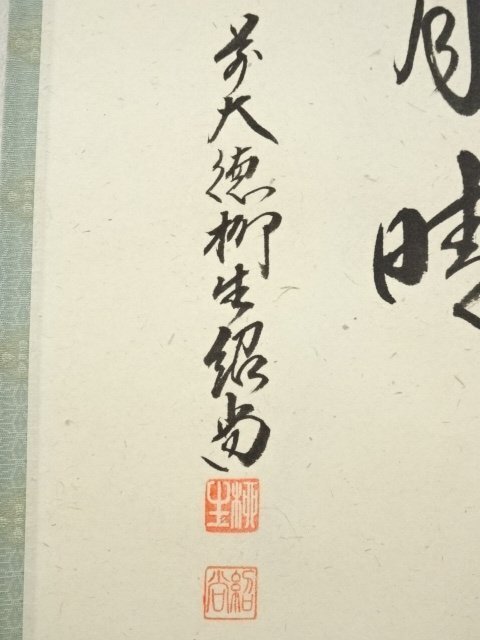 月晴
前大徳柳生紹尚
柳生
紹尚